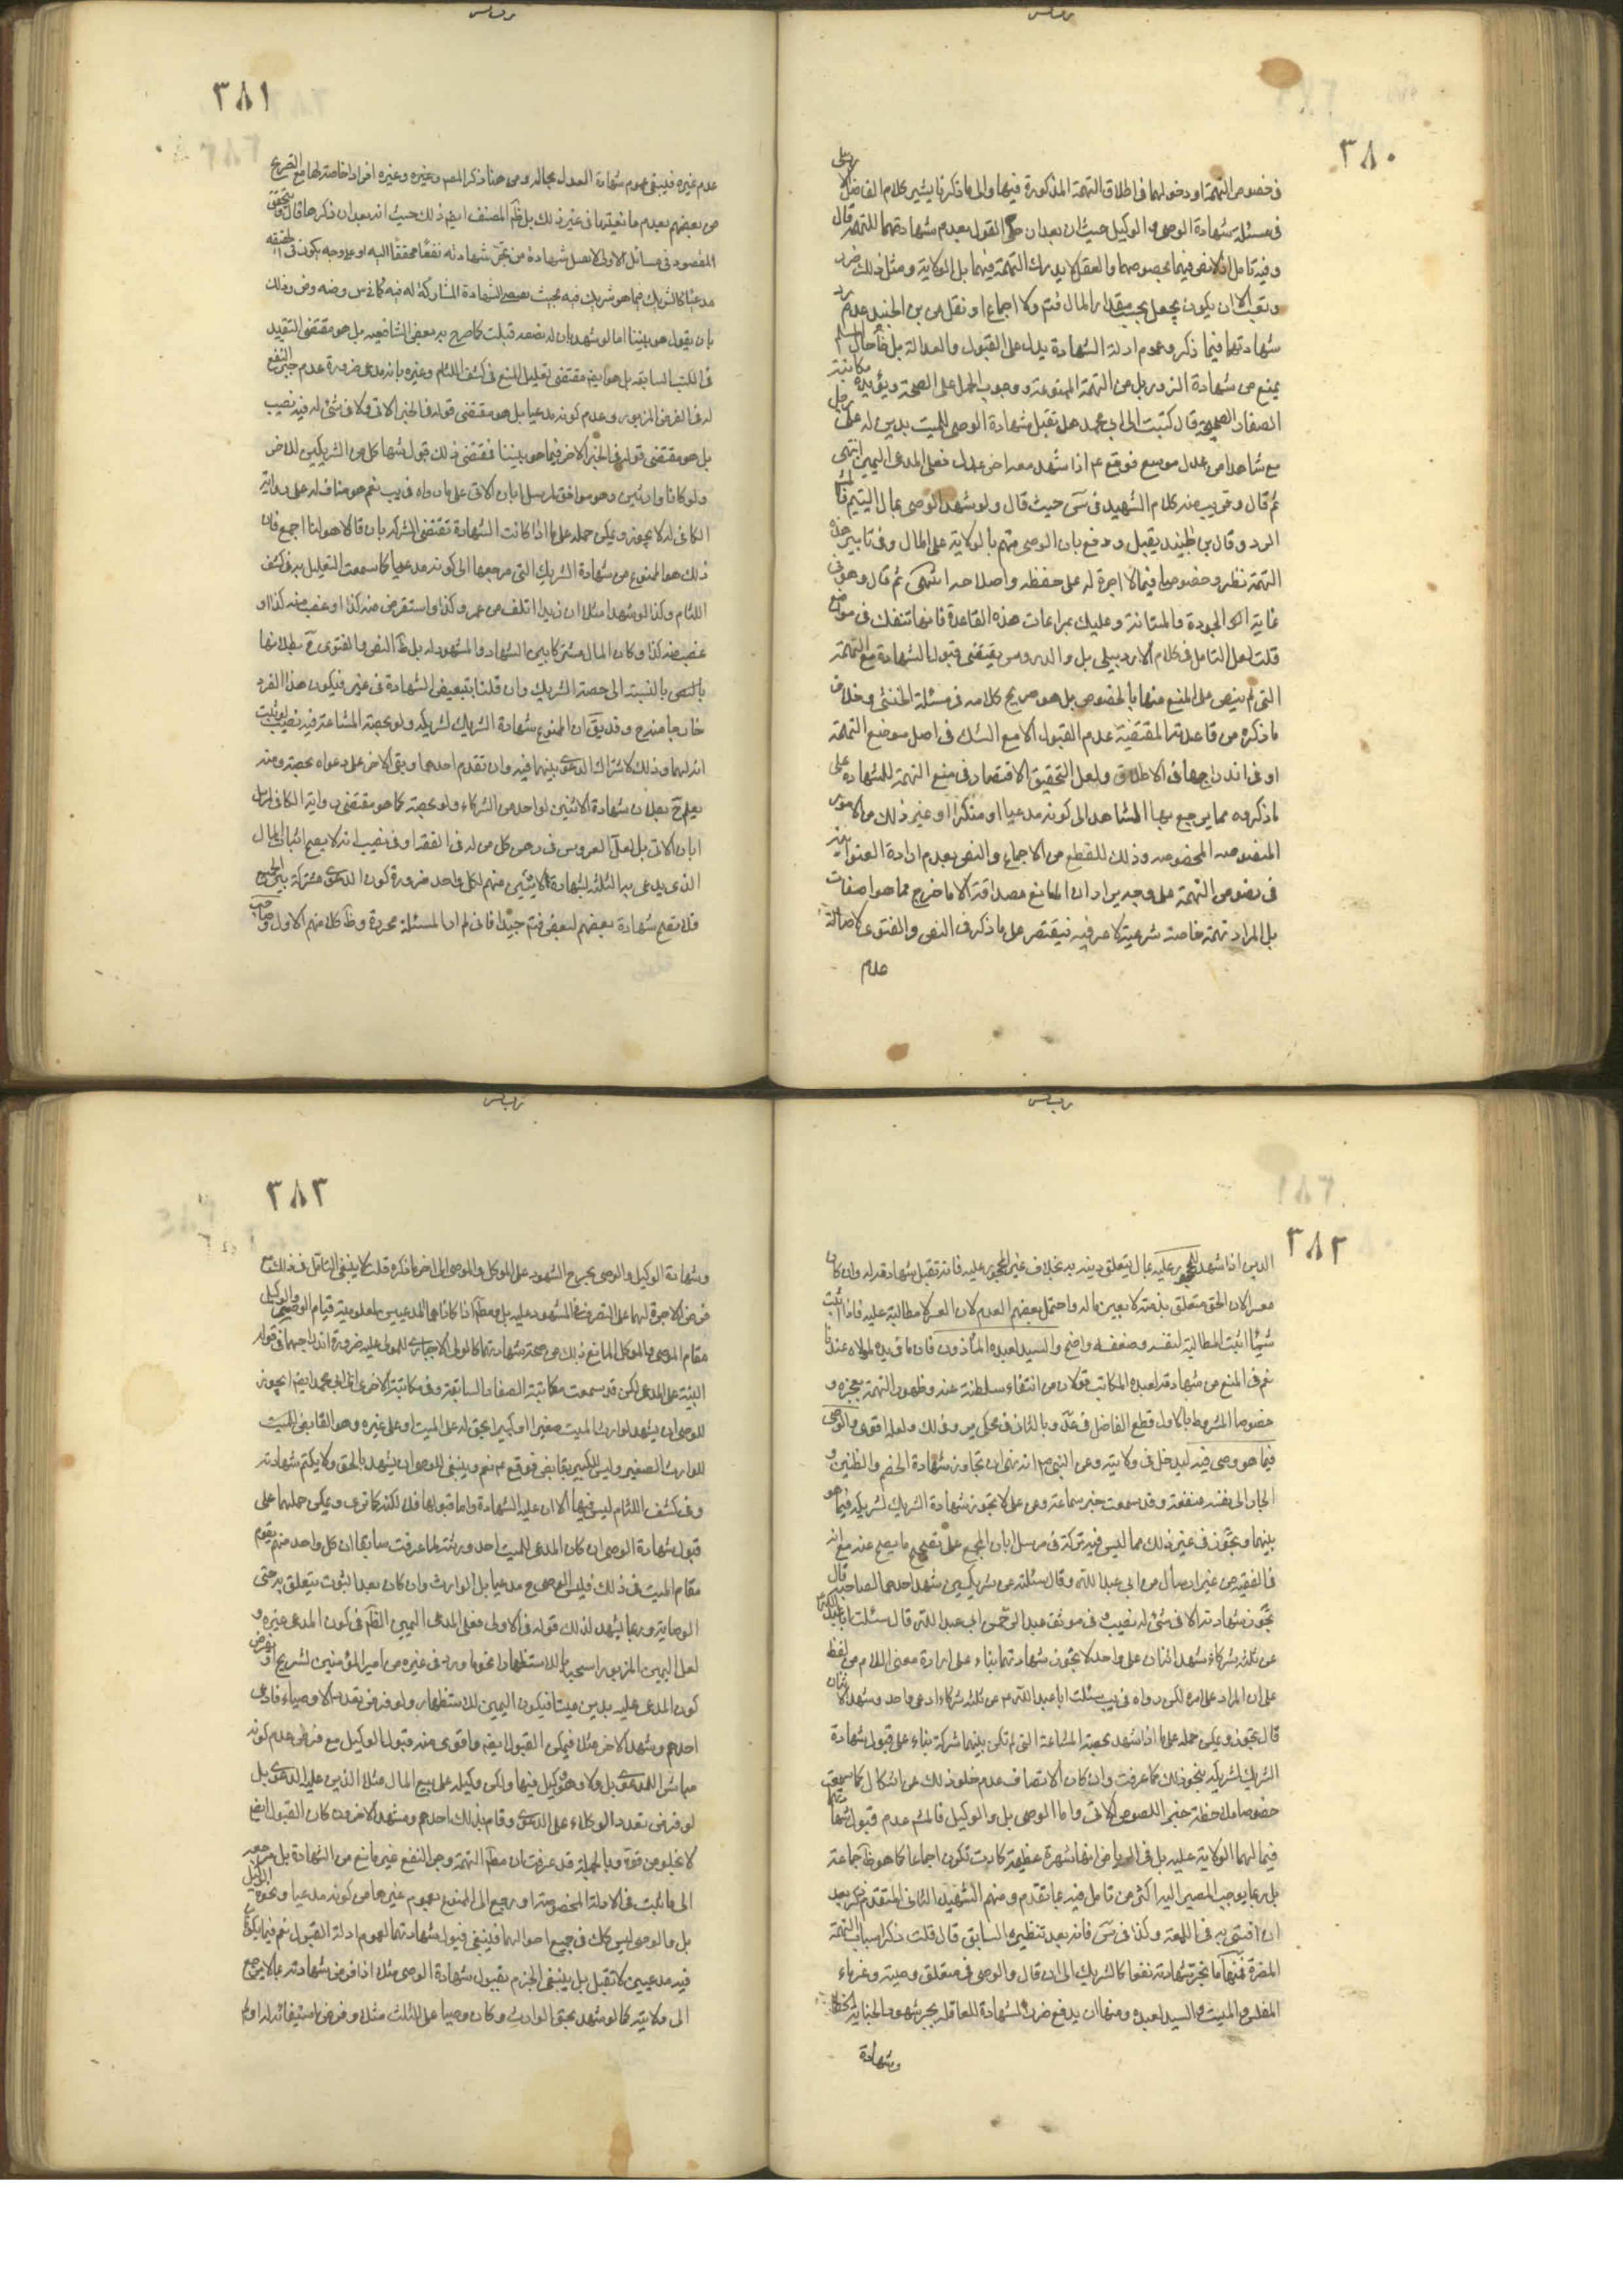 ٣٨٠
في خصوص التهمة او دخولهما في اطلاق التهمة المذكورة فيها والى ما ذكرنا يشير كلام الفاضل
في مسئلة شهادة الوصي والوكيل حيث ان بعد ان حكى القول بعدم شهادتهما للتهمة قال
وفيه تامل اذ لا نص فيهما بخصوصهما والعقل لا يدرك التهمة فيهما بل الولاية ومثل ذلك
وتعب الا ان يكون بجعل بحسب مقدار المال فتم ولا اجماع اذ نقل عن بن الجنيد عدم رد
شهادتهما فيما ذكر وعموم ادلة الشهادة يدل على القبول والعدالة بل ظاهر حال المسلم
يمنع من شهادة الزور بل من التهمة الممنوعة ووجوب الحمل على الصحة ويؤيده مكاتبة
الصفار الصحيحة قال كتبت الى ابي محمد هل تقبل شهادة الوصي للميت بدين له على رجل
مع شاهد اخر عدل فوقع ع اذا شهد معه اخر عدل فعلى المدعي اليمين انتهى
ثم قال وقريب منه كلام الشهيد في س حيث قال ولو شهد الوصي بمال اليتيم فالمشهور
الرد وقال بن الجنيد يقبل ودفع بان الوصي متهم بالولاية على المال وفي تاثير هذه
التهمة نظر وخصوصا فيما لا اجرة له على حفظه واصلاحه انتهى ثم قال وهو في
غاية الجودة والمتانة وعليك بمراعات هذه القاعدة فانها تنفك في مواضع
قلت لعل التامل في كلام الاردبيلي بل والدروس يقتضي قبول الشهادة مع التهمة
التي لم ينص على المنع منها بالخصوص بل هو صريح كلامه في مسئلة الخنثى وخلاف
ما ذكره من قاعدته المقتضية عدم القبول الا مع الشك في اصل موضع التهمة
او في اندراجها في الاطلاق ولعل التحقيق الاقتصار في منع التهمة للشهادة على
ما ذكروه مما يرجع بها الشاهد الى كونه مدعيا او منكرا او غير ذلك من الامور
المنصوصه المخصوصه وذلك للقطع من الاجماع والنص بعدم ارادة العنوانية
في نصوص التهمة على وجه يراد ان المانع مصداقه الا ما خرج مما هو اضعاف
بل المراد تهمة خاصة شرعية لا عرفيه فيقتصر على ما ذكر في النص والفتوى لاصالة
عدم
٣٨١
عدم غيره فيبقى عموم شهادة العدل بحاله ومن هنا ذكر المصـ وغيره وغيره افرادا خاصة لها مع التصريح
من بعضهم بعدم مانعيتها في غير ذلك بل ظم المصنف ايض ذلك حيث انه بعد ان ذكرها قال ويتحقق
المقصود في مسائل الاولى لا تقبل شهادة من تجر شهادته نفعا محققا اليه او على وجه يكون في الحقيقه
مدعيا كالشريك فيما هو شريك فيه بحيث تقتضي الشهادة المشاركة له فيه كما في س وضه وض وذلك
بان يقول هو بيننا اما لو شهد بان له نصفه قبلت كما صرح به بعض الشافعيه بل هو مقتضى التقييد
في الكتب السابقه بل هو ايض مقتضى تعليل المنع في كشف اللثام وغيره بانه مدعي ضرورة عدم جر النفع
له في الفرض المزبور وعدم كونه مدعيا بل هو مقتضى قوله في الخبر الاتي ولا في شئ له فيه نصيب
بل هو مقتضى قوله في الخبر الاخر فيما هو بيننا فمقتضى ذلك قبول شهادة كل من الشريكين للاخر
ولو كانا وارثين وهو موافق لمرسل ابان الاتي على ما رواه في يب نعم هو مناف له على رواية
الكافي له لا يجوز ويمكن حمله على ما اذا كانت الشهادة تقتضي الشركه بان قالا هو لنا اجمع فان
ذلك هو الممنوع من شهادة الشريك التي مرجعها الى كونه مدعيا كما سمعت التعليل به في كشف
اللثام وكذا لو شهد مثلا ان زيدا اتلف من عمرو كذا واستقرض منه كذا او غصب منه كذا او
غصب منه كذا وكان المال مشتركا بين الشهاد والمشهود له بل ظ النص والفتوى ح بطلانها
بالنص بالنسبة الى حصة الشريك وان قلنا بتبعيض الشهادة في غير فيكون هذا الفرد
خارجا منه ح وقد يق ان الممنوع شهادة الشريك لشريكه ولو بحصته المشاعة فيه نصيب
انه لهما وذلك لاشتراك الدعوى بينهما فيه وان تقدم احدهما وبقى الاخر على دعواه بحصته ومنه
يعلم ح بطلان شهادة الاثنين لواحد من الشركاء ولو بحصته كما هو مقتضى رواية الكافي لمرسل
ابان الاتي بل لعل المدروس في رهن كل من له في الفقد او في نصيب انه لا يصح اثبات المال
الذي يدعي به الثلثه بشهادة الاثنين منهم لكل واحد ضرورة كون الدعوى مشتركة بين الجميع
فلا تصح شهادة بعضهم لبعض فتم جيدا فاني لم ار المسئلة محررة وظ كلامهم الاول
٣٨٢
الدين اذا شهد للمحجور عليه بمال يتعلق دينه به بخلاف غير المحجور عليه فانه تقبل شهادته له وان كان
معسرا لان الحق متعلق بذمته لا بعين ماله واحتمل بعضهم العدم لان المعسر لا مطالبة عليه فاذا اثبت
شيئا اثبت المطالبة لنفسه وضعفه واضح والسيد لعبده المأذون فان ما في يده لمولاه عندنا
نعم في المنع من شهادته لعبده المكاتب قولان من انتفاء سلطنته عنه وظهور التهمة بعجزه و
خصوصا المشروط بالاول قطع الفاضل في عد وبالثاني في محكي ير وفي لك ولعله اقوى والوصي
فيما هو وصي فيه لدخل في ولايته وعن النبي ص انه نهى ان تجاوز شهادة الخصم والظنين و
الجار الى نفسه منفعة وقد سمعت خبر سماعة وعن علي لا تجوز شهادة الشريك لشريكه فيما هو
بينهما وتجوز في غير ذلك مما ليس فيه شركة في مرسل ابان المجمع على تصحيح ما يصح عنه مع انه
في الفقيه من غير ارسال من ابي عبد الله وقال سئلته عن شريكين شهد احدهما لصاحبه قال
تجوز شهادته الا في شئ له نصيب في موثق عبد الرحمن ابي عبد الله قال سئلت ابا عبد الله
عن ثلثه شركاء شهد اثنان على واحد لا تجوز شهادتهما بناء على ارادة معنى اللام من لفظ
على ان المراد على امره لكن رواه في يب سئلت ابا عبد الله ع عن ثلثه شركاء ادعى واحد وشهد الاثنان
قال يجوز ويمكن حمله على ما اذا شهد بحصته المشاعة التي لم تكن بينهما شركة بناء على قبول شهادة
الشريك لشريكه بنحو ذلك كما عرفت وان كان الانصاف عدم خلو ذلك عن اشكال كما سمعت
خصوصا مع ملاحظة خبر اللصوص الاتي واما الوصي بل والوكيل فالمشـ عدم قبول شهادتهما
فيما لهما الولاية عليه بل في الرياض انها شهرة عظيمة كادت تكون اجماعا كما هو ظ جماعة
بل ربما يوجب المصير اليه اكثر من تامل فيه بما تقدم ومنهم الشهيد الثاني المتقدم ذكره بعد
ان افتى به في اللمعة وكذا في س فانه بعد تنظيره السابق قال قلت ذكر اسباب التهمة
المضرة فمنها ما تجر شهادته نفعا كالشريك الى ان قال والوصي في متعلق وصيته وغرماء
المفلس والميت والسيد لعبده ومنها ان يدفع ضررا كشهادة العاقلة بجرح شهود الجناية الخطا
وشهادة
٣٨٣
وشهادة الوكيل والوصي بجرح الشهود على الموكل والموصي الى اخر ما ذكره قلت لا ينبغي التامل في ذلك مع
فرض الاجرة لهما على التصرف في المشهود عليه بل ومطلقا اذا كانا هما المدعيين لمعلومية قيام الوصي والوكيل
مقام الموصي والموكل المانع ذلك من صحة شهادتهما كالولي الاجباري للمولى عليه ضرورة اندراجهما في قوله
البينة على المدعي لكن قد سمعت مكاتبة الصفار السابقة وفي مكاتبته الاخرى الى ابي محمد ايض ايجوز
للوصي ان يشهد لوارث الميت صغيرا او كبيرا بحق له على الميت او على غيره وهو القابض للميت
للوارث الصغير وليس للكبير بقابض فوقع ع نعم وينبغي للوصي ان يشهد بالحق ولا يكتم شهادته
وفي كشف اللثام ليس فيها الا ان عليه الشهادة واما قبولها فلا لكنه كما ترى ويمكن حملهما على
قبول شهادة الوصي ان كان المدعي للميت احد ورثته لما عرفت سابقا ان كل واحد منهم يقوم
مقام الميت في ذلك فليس الوصي ح مدعيا بل الوارث وان كان بعد الثبوت يتعلق به حق
الوصاية وربما يشهد لذلك قوله في الاولى فعلى المدعي اليمين الظاهر في كون المدعي غيره و
لعل اليمين المزبور استحبابا للاستظهار او نحو ما ورد في غيره من امير المؤمنين لشريح او بفرض
كون المدعى عليه بدين ميت فيكون اليمين للاستظهار ولو فرض تعدد الاوصياء فادعى
احدهم وشهد الاخر مثلا فيمكن القبول ايض واقوى منه قبول الوكيل مع فرض عدم كونه
مباشر الدعوى بل ولا وهو وكيل فيها ولكن وكيله على بيع المال مثلا الذين عليه الدعوى بل
لو فرض تعدد الوكلاء على الدعوى وقام بذلك احدهم وشهد الاخرون كان القبول ايض
لا يخلو من قوة وبالجملة قد عرفت ان مطلق التهمة وجر النفع غير مانع من الشهادة بل مرجعه
الى ما ثبت في الادلة المخصوصة او يرجع الى الممنوع بعموم غيرها من كونه مدعيا ونحوه والوكيل
بل والوصي ليس كك في جميع احوالهما فينبغي قبول شهادتهما لعموم ادلة القبول نعم فيما يكونان
فيه مدعيين لا تقبل بل ينبغي الجزم بقبول شهادة الوصي مثلا اذا فرض شهادته بما لا يرجع
الى ولايته كما لو شهد بحق الوارث وكان وصيا على الثلث مثلا وفرض استيفائه له او لم